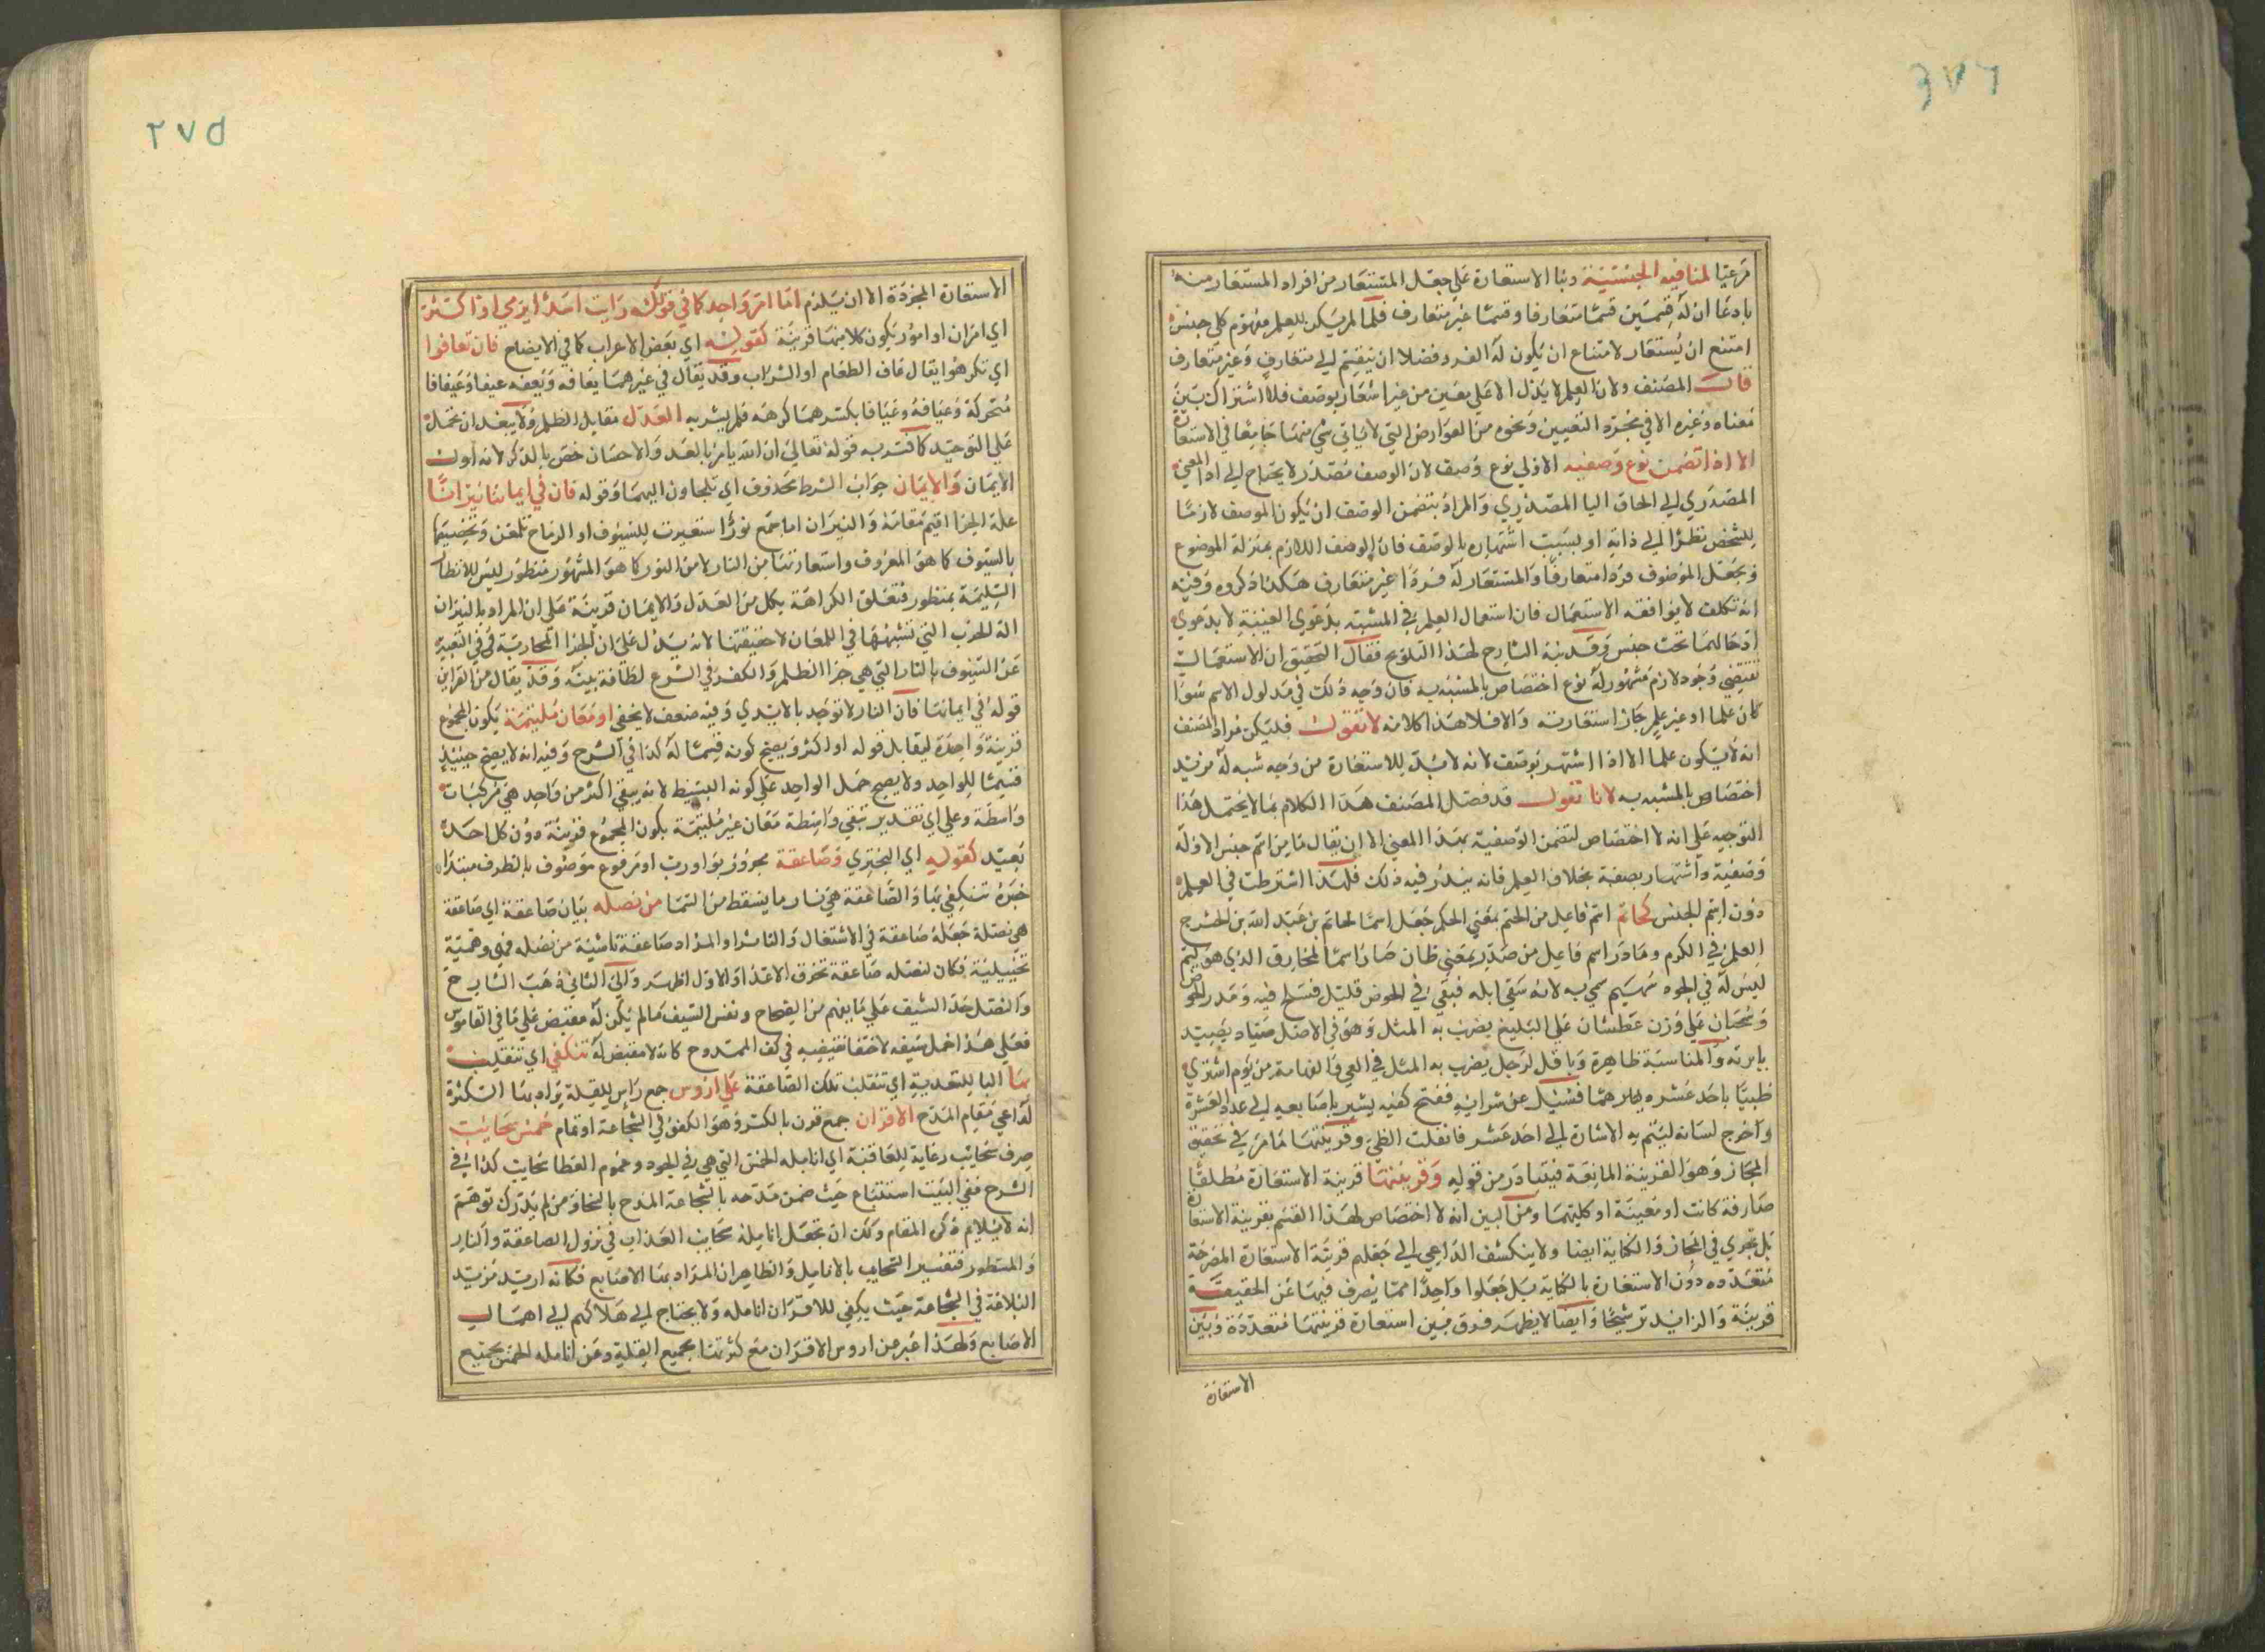 ٢٧٤
مرعيا لمنافيه الجنسية وبنا الاستعارة على جعل المستعار من افراد المستعار منه
بادعا ان له قسمين قسما متعارفا وقسما غير متعارف فلما لم يكن للعلم مفهوم كلي جنس
امتنع ان يستعار لامتناع ان يكون له الفرد فضلا ان ينقسم الى متعارف وغير متعارف
قال المصنف ولان العلم لا يدل الا على معين من غير اشعار بوصف فلا اشتراك بين
معناه وغيره الا في مجرد التعيين ونحوه من العوارض التي لا ياتي شي منها جامعا في الاستعارة
الا اذا تضمن نوع وصفيه الاولى نوع وصف لان الوصف مصدر لا يحتاج الى ادا المعنى
المصدري الى الحاق اليا المصدري والمراد بتضمن الوصف ان يكون الوصف لازما
للشخص نظرا الى ذاته او بسبب اشتهاره بالوصف فان الوصف اللازم بمنزلة الموضوع
ويجعل الموضوف فردا متعارفا والمستعار له فردا غير متعارف هكذا ذكروه وفيه
انه تكلف لا يوافقه الاستعمال فان استعمال العلم في المشبه بدعوى العينية لا بدعوى
ادخالهما تحت جنس وقد نبه الشارح لهذا التلويح فقال التحقيق ان الاستعمال
تقتضي وجود لازم مشهور له نوع اختصاص بالمشبه به فان وجه ذلك في مدلول الاسم سوا
كان علما او غير علم جاز استعارته والا فلا هذا كلامه لا تقول فليكن مراد المصنف
انه لا يكون علما الا اذا اشتهر بوصف لانه لا بد للاستعارة من وجه شبه له مزيد
اختصاص بالمشبه به لانا نقول قد فصل المصنف هذا الكلام بما لا يحتمل هذا
التوجيه على انه لا اختصاص لتضمن الوصفية بهذا المعنى الا ان يقال ما من اسم جنس الا وله
وصفية واشتهار بصفة بخلاف العلم فانه يندر فيه ذلك فلهذا اشترطت في العلم
دون اسم الجنس كحاتم اسم فاعل من الحتم بمعنى الحكم جعل اسما لحاتم بن عبد الله بن الحشرج
العلم في الكرم ومادر اسم فاعل من مدر بمعنى طان صار اسما لمخارق الذي هو لئيم
ليس له في الجود سهيم سمي به لانه سقى ابله فبقي في الحوض قليل فسلح فيه ومدر الحوض
وسحبان على وزن عطشان على البليغ يضرب به المثل وهو في الاصل صياد يصيد
بابرته والمناسبة ظاهرة وباقل لرجل يضرب به المثل في العي والفهامة من يوم اشترى
ظبيا باحد عشر درهما فسئل عن شرائه ففتح كفيه يشير باصابعه الى عدد العشرة
واخرج لسانه ليتم به الاشارة الى احد عشر فانفلت الظبي وقرينتها ما مر في تحقيق
المجاز وهو القرينة المانعة فيتبادر من قوله وقرينتها قرينة الاستعارة مطلقا
صارفة كانت او معينة او كليتهما ومن البين انه لا اختصاص لهذا القسم بقرينة الاستعارة
بل تجري في المجاز والكناية ايضا ولا ينكشف الداعي الى جعلهم قرينة الاستعارة المصرحة
متعدده دون الاستعارة بالكناية بل جعلوا واحدا مما يصرف فيها عن الحقيقة
قرينة والزايد ترشيحا وايضا لا يظهر فرق بين استعارة قرينتها متعددة وبين
الاستعارة
٢٧٥
الاستعارة المجردة الا ان يلزم اما امر واحد كما في قولك رايت اسدا يرمي او اكثر
اي امران او امور يكون كل منها قرينة كقوله اي بعض الاعراب كما في الايضاح فان تعافوا
اي تكرهوا يقال عاف الطعام او الشراب وقد يقال في غيرهما يعافه ويعيفه عيفا وعيفانا
متحركة وعيافة وعيافا بكسرهما كرهه فلم يشربه العدل مقابل الظلم ولا يبعد ان تحمله
على التوحيد كما فسر به قوله تعالى ان الله يامر بالعدل والاحسان خص بالذكر لانه اول
الايمان والايمان جواب الشرط محذوف اي تلجاون اليهما وقوله فان في ايماننا نيرانا
علة الجزا اقيم مقامه والنيران اما جمع نور استعيرت للسيوف او الرماح تلمعن وتخصيصها
بالسيوف كما هو المعروف واستعارتها من النار لا من النور كما هو المشهور منظور ليس للانظار
السليمة بمنظور فتعلق الكراهة بكل من العدل والايمان قرينة على ان المراد بالنيران
الة الحرب التي تشبهها في اللمعان لا حقيقتها لانه يدل على ان الجزا المحاربة وفي التعبير
عن السيوف بالنار التي هي جزا الظلم والكفر في الشرع لطافة بينة وقد يقال من القراين
قوله في ايماننا فان النار لا توجد بالايدي وفيه ضعف لا يخفى او معان ملتئمة يكون المجموع
قرينة واحدة ليقابل قوله او اكثر ويصح كونه قسيما له كذا في الشرح وفيه انه لا يصح حينئذ
قسيما للواحد ولا يصح حمل الواحد على كونه البسيط لانه يبقى اكثر من واحد هي مركبات
واسطة وعلى اي تقدير تبقى واسطة معان غير ملتئمة يكون المجموع قرينة دون كل احد
بعيد كقوله اي البحتري وصاعقة مجرور بواو رب او مرفوع موصوف بالظرف مبتدا
خبره تنكفي بها والصاعقة هي نار ما يسقط من السما من نصله بيان صاعقة اي صاعقة
هي نصلة جعله صاعقة في الاشتعال والتاثير او المراد صاعقة ناشية من نصله فهي وهمية
تخييلية فكان لنصله صاعقة تحرق الاعدا والاول اظهر والى الثاني ذهب الشارح
والنصل حد السيف على ما يفهم من الصحاح ونفس السيف ما لم يكن له مقبض على ما في القاموس
فعلى هذا حمل سيفه لاختفا مقبضه في كف الممدوح كانه لا مقبض له تنكفي اي تنقلب
بها البا للتعدية اي تنقلب تلك الصاعقة على ارؤس جمع راس للقلة يراد بها الكثرة
لداعي مقام المدح الاقران جمع قرن بالكسر وهو الكفؤ في الشجاعة او تمام خمس سحايب
صرف سحايب رعاية للقافية اي انامله الخمس التي هي في الجود وعموم العطا سحايب كذا في
الشرح ففي البيت استتباع حيث ضمن مدحه بالشجاعة المدح بالسخاوة من لم يدرك توهم
انه لا يلايم ذكر المقام وكان ان تجعل انامله سحايب العذاب في نزول الصاعقة والنار
والمنظور فتفسير السحايب بالانامل والظاهر ان المراد بها الاصابع فكانه اريد مزيد
البلاغة في الشجاعة حيث يكفي للاقران انامله ولا يحتاج الى هلاكهم الى اهمال
الاصابع ولهذا عبر عن اروس الاقران مع كثرتها بجميع القلة وعن انامله الخمس بجميع